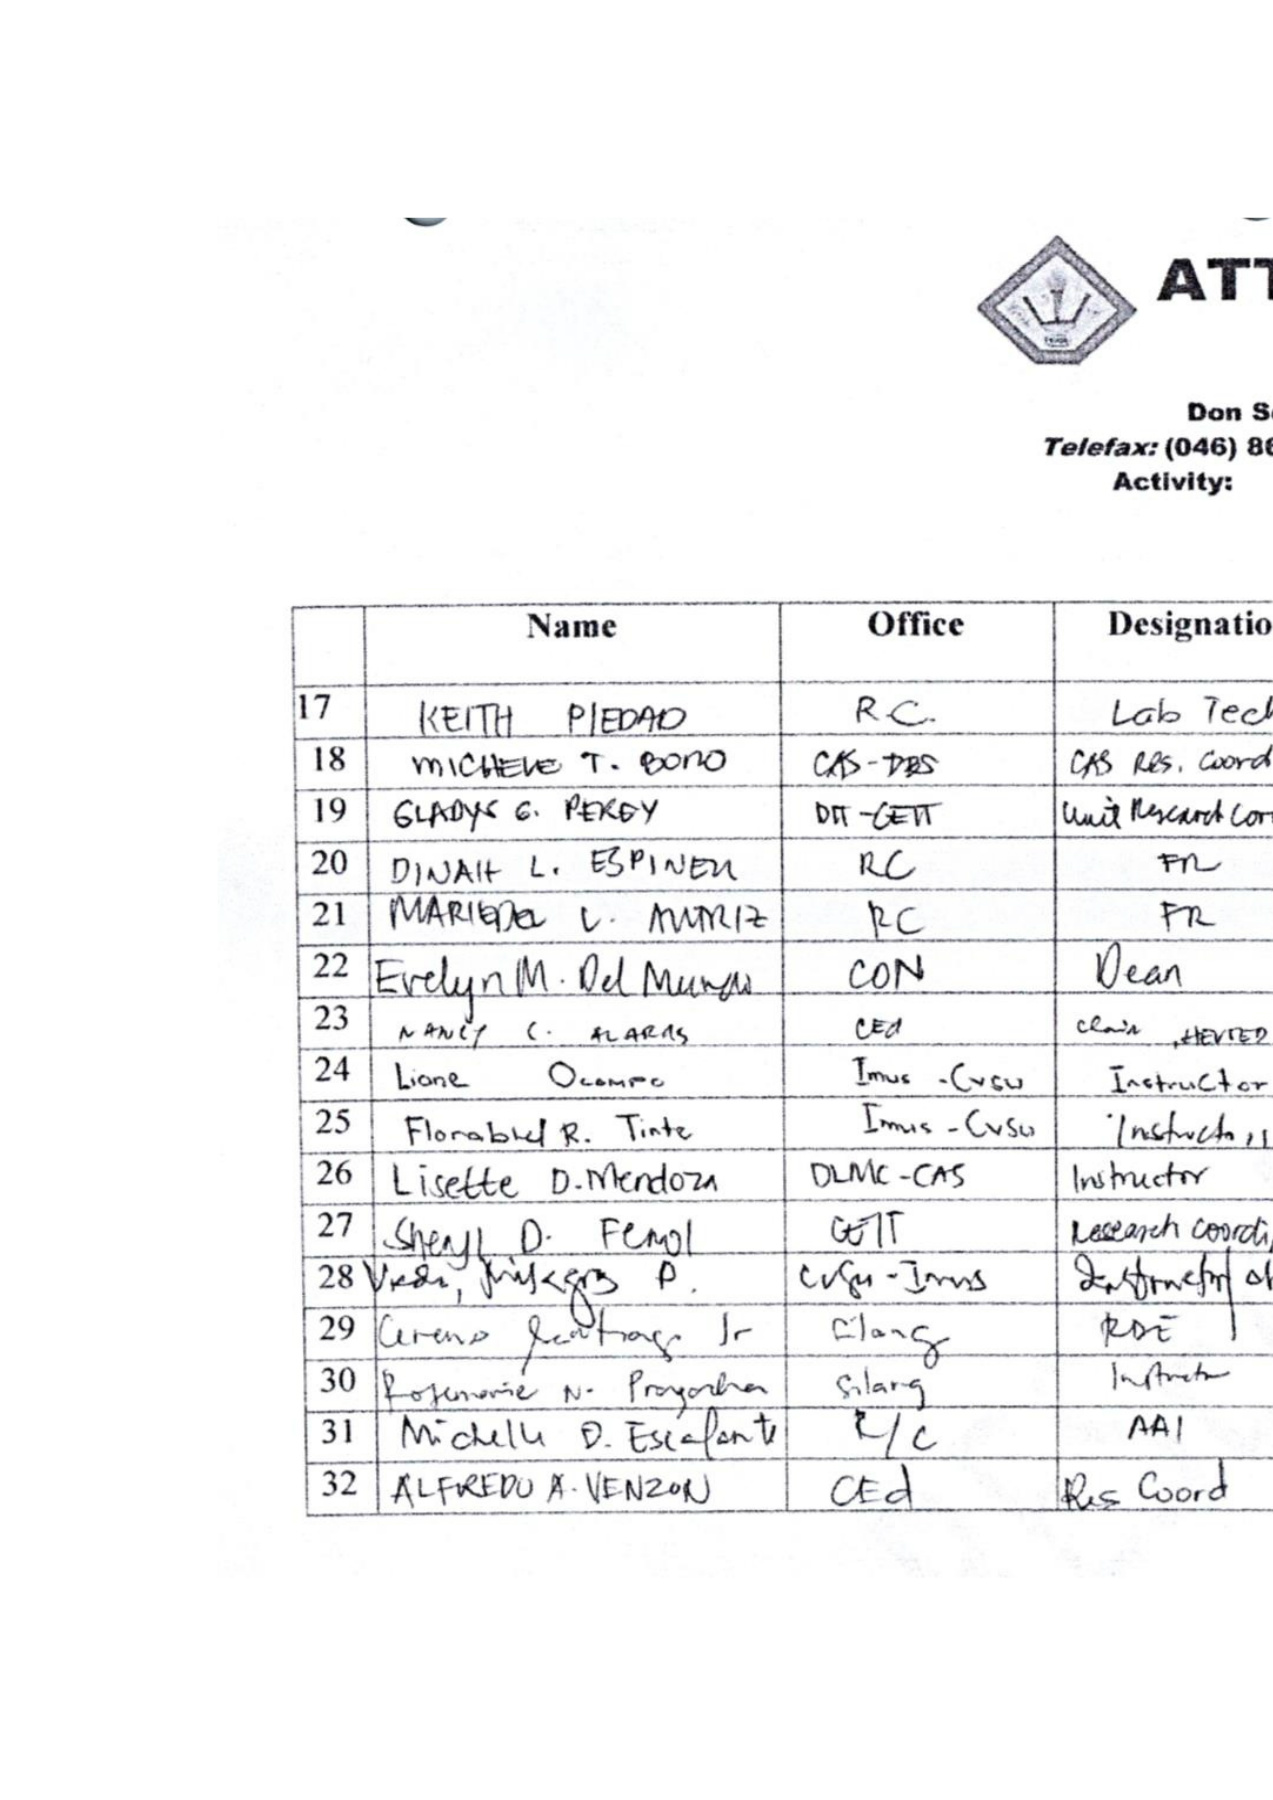 ATT
Don S
Telefax: (046) 86
Activity:
Name Office Designatio
17 KEITH PIEDAD R.C. Lab Tech
18 MICHELE T. BONO CAS-DBS CAS Res. Coord
19 GLADYS G. PEREY DIT-CEIT Unit Research Cor
20 DINAH L. ESPINELI RC FR
21 L. RC FR
22 Evelyn M. Del Mundo CON Dean
23 NANCY C. ALARAS CEd Chair,
24 Liane Ocampo Imus -CvSU Instructor
25 Florabhel R. Tinte Imus -CvSU Instructor
26 Lisette D. Mendoza DLMC-CAS Instructor
27 Sheryl D. Fenol CEIT Research coordi
28 P. CvSU-Imus Instructor
29 Cereno Santiago Jr Silang RDE
30 Rosemarie N. Silang Instructor
31 Michelle D. Escalante R/C AA1
32 ALFREDO A. VENZON CEd Res Coord